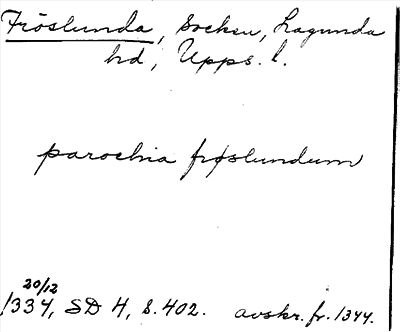 Fröslunda, socken, Lagunda
hd, Upps. l.
parochia frøslundum
20/12
1334, SD 4, s. 402. avskr. fr. 1344.